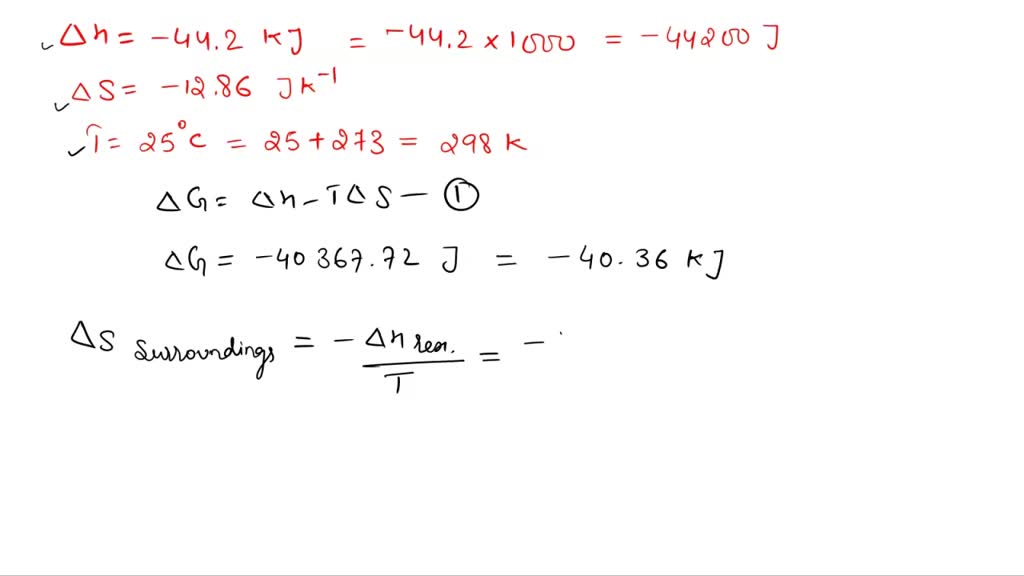 Δh = -44.2 kJ = -44.2 x 1000 = -44200 J
ΔS = -12.86 JK⁻¹
T = 25°C = 25 + 273 = 298 K
ΔG = Δh - TΔS — ①
ΔG = -40367.72 J = -40.36 kJ
ΔS surroundings = - Δh rxn. / T = -